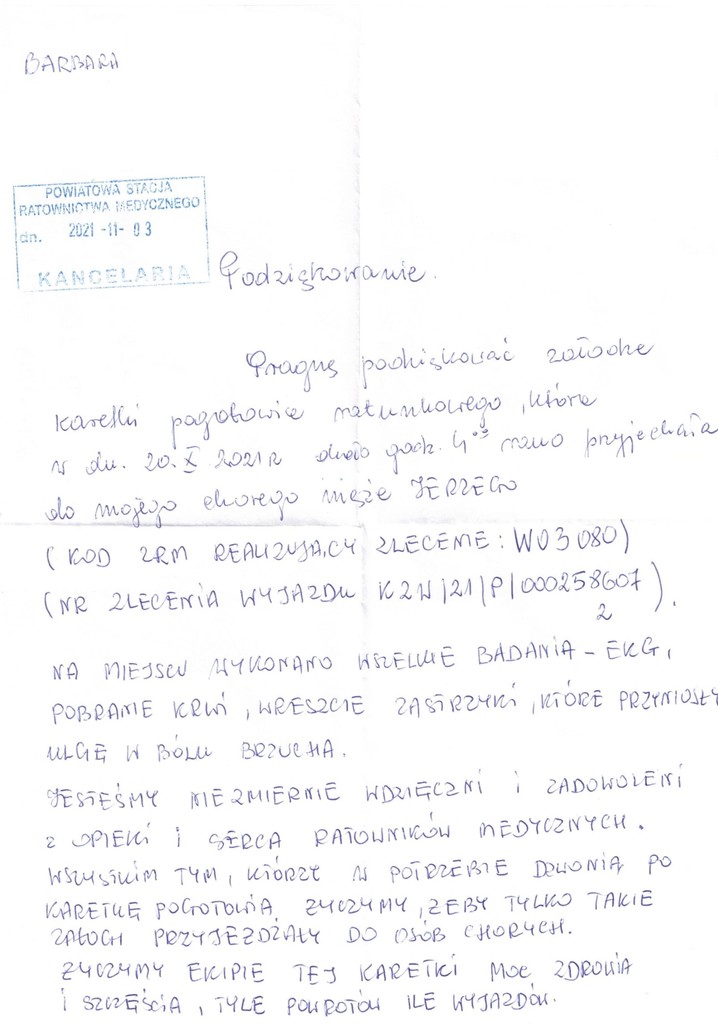 BARBARA
POWIATOWA STACJA
RATOWNICTWA MEDYCZNEGO
dn. 2021 -11- 03
KANCELARIA
Podziękowanie.
Pragnę podziękować załodze
karetki pogotowia ratunkowego, która
w dn. 20. X 2021 r około godz. 4⁰⁰ rano przyjechała
do mojego chorego męża JERZEGO
(KOD ZRM REALIZUJĄCY ZLECENIE: W03080)
(NR ZLECENIA WYJAZDU K2W/21/P/000258607
2 ).
NA MIEJSCU WYKONANO WSZELKIE BADANIA - EKG,
POBRANIE KRWI, WRESZCIE ZASTRZYKI, KTÓRE PRZYNIOSŁY
ULGĘ W BÓLU BRZUCHA.
JESTEŚMY NIEZMIERNIE WDZIĘCZNI I ZADOWOLENI
Z OPIEKI I SERCA RATOWNIKÓW MEDYCZNYCH.
WSZYSTKIM TYM, KTÓRZY W POTRZEBIE DZWONIĄ PO
KARETKĘ POGOTOWIA ŻYCZYMY, ŻEBY TYLKO TAKIE
ZAŁOGI PRZYJEŻDŻAŁY DO OSÓB CHORYCH.
ŻYCZYMY EKIPIE TEJ KARETKI MOC ZDROWIA
I SZCZĘŚCIA, TYLE POWROTÓW ILE WYJAZDÓW.